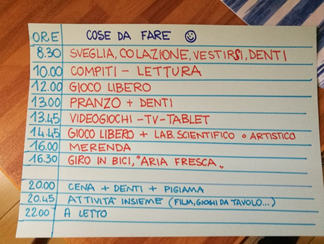 ORE COSE DA FARE
8.30 SVEGLIA, COLAZIONE, VESTIRSI, DENTI
10.00 COMPITI - LETTURA
12.00 GIOCO LIBERO
13.00 PRANZO + DENTI
13.45 VIDEOGIOCHI - TV - TABLET
14.45 GIOCO LIBERO + LAB. SCIENTIFICO O ARTISTICO
16.00 MERENDA
16.30 GIRO IN BICI, "ARIA FRESCA"
20.00 CENA + DENTI + PIGIAMA
20.45 ATTIVITÀ INSIEME (FILM, GIOCHI DA TAVOLO...)
22.00 A LETTO